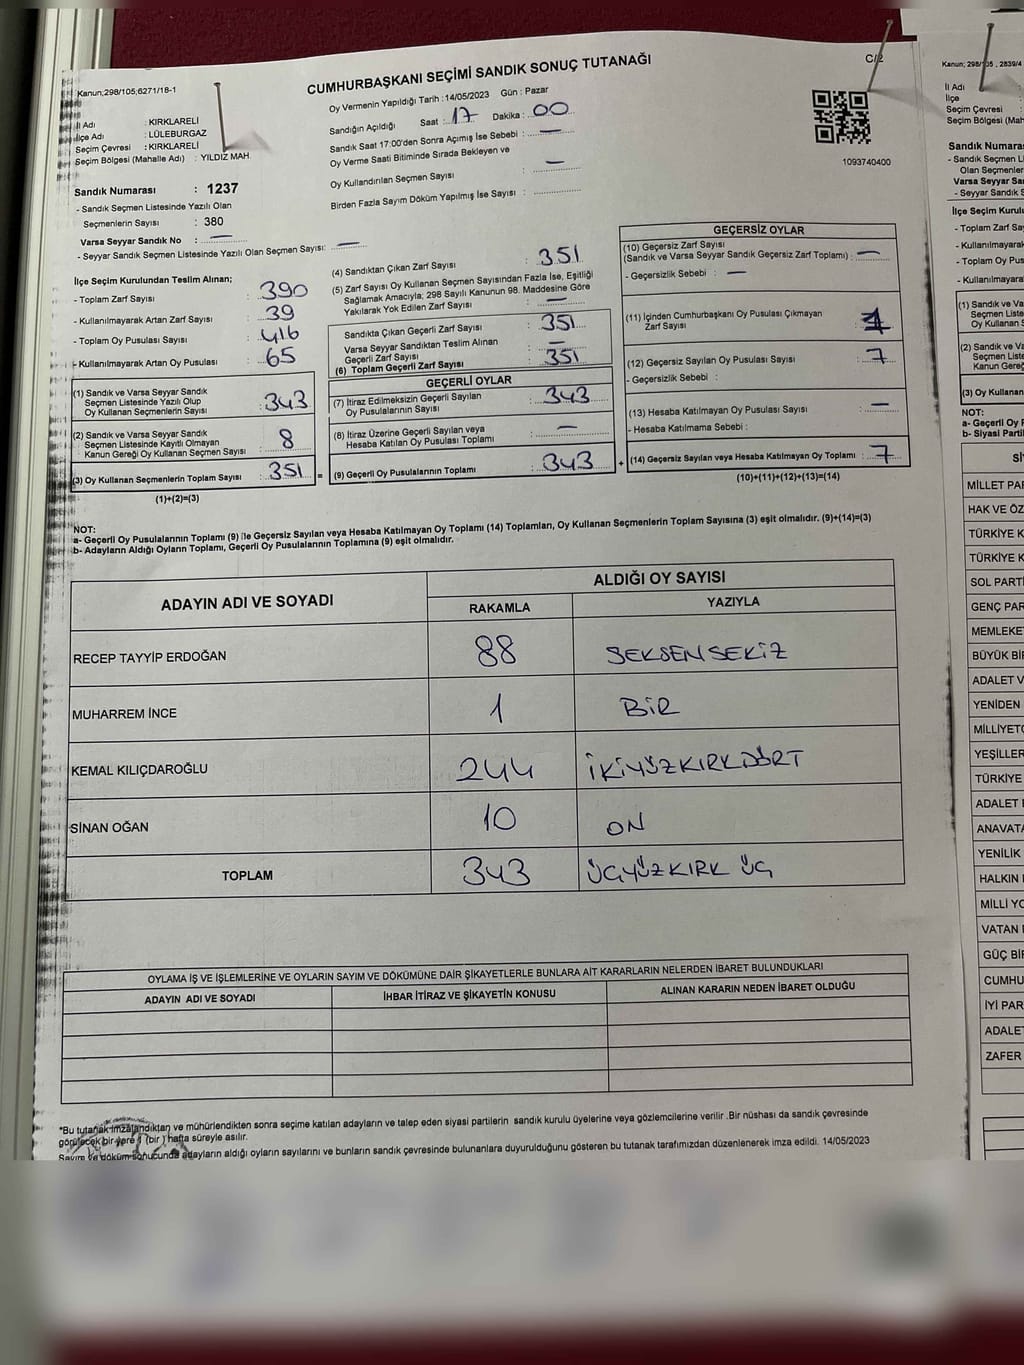 CUMHURBAŞKANI SEÇİMİ SANDIK SONUÇ TUTANAĞI
C/2
Kanun;298/105;6271/18-1
İl Adı : KIRKLARELİ
İlçe Adı : LÜLEBURGAZ
Seçim Çevresi : KIRKLARELİ
Seçim Bölgesi (Mahalle Adı) : YILDIZ MAH.
Sandık Numarası : 1237
- Sandık Seçmen Listesinde Yazılı Olan
Seçmenlerin Sayısı : 380
Varsa Seyyar Sandık No : —
- Seyyar Sandık Seçmen Listesinde Yazılı Olan Seçmen Sayısı: —
Oy Vermenin Yapıldığı Tarih : 14/05/2023 Gün : Pazar
Sandığın Açıldığı Saat : 17 Dakika : 00
Sandık Saat 17:00'den Sonra Açımış İse Sebebi : —
Oy Verme Saati Bitiminde Sırada Bekleyen ve
Oy Kullandırılan Seçmen Sayısı : —
Birden Fazla Sayım Döküm Yapılmış İse Sayısı :
1093740400
İlçe Seçim Kurulundan Teslim Alınan;
- Toplam Zarf Sayısı : 390
- Kullanılmayarak Artan Zarf Sayısı : 39
- Toplam Oy Pusulası Sayısı : 416
- Kullanılmayarak Artan Oy Pusulası : 65
(1) Sandık ve Varsa Seyyar Sandık
Seçmen Listesinde Yazılı Olup
Oy Kullanan Seçmenlerin Sayısı : 343
(2) Sandık ve Varsa Seyyar Sandık
Seçmen Listesinde Kayıtlı Olmayan
Kanun Gereği Oy Kullanan Seçmen Sayısı : 8
(3) Oy Kullanan Seçmenlerin Toplam Sayısı : 351 =
(1)+(2)=(3)
(4) Sandıktan Çıkan Zarf Sayısı : 351
(5) Zarf Sayısı Oy Kullanan Seçmen Sayısından Fazla İse, Eşitliği
Sağlamak Amacıyla; 298 Sayılı Kanunun 98. Maddesine Göre
Yakılarak Yok Edilen Zarf Sayısı : —
Sandıkta Çıkan Geçerli Zarf Sayısı : 351
Varsa Seyyar Sandıktan Teslim Alınan
Geçerli Zarf Sayısı : —
(6) Toplam Geçerli Zarf Sayısı : 351
GEÇERLİ OYLAR
(7) İtiraz Edilmeksizin Geçerli Sayılan
Oy Pusulalarının Sayısı : 343
(8) İtiraz Üzerine Geçerli Sayılan veya
Hesaba Katılan Oy Pusulası Toplamı : —
(9) Geçerli Oy Pusulalarının Toplamı : 343 +
GEÇERSİZ OYLAR
(10) Geçersiz Zarf Sayısı
(Sandık ve Varsa Seyyar Sandık Geçersiz Zarf Toplamı) : —
- Geçersizlik Sebebi : —
(11) İçinden Cumhurbaşkanı Oy Pusulası Çıkmayan
Zarf Sayısı :
(12) Geçersiz Sayılan Oy Pusulası Sayısı : 7
- Geçersizlik Sebebi :
(13) Hesaba Katılmayan Oy Pusulası Sayısı : —
- Hesaba Katılmama Sebebi :
(14) Geçersiz Sayılan veya Hesaba Katılmayan Oy Toplamı : 7
(10)+(11)+(12)+(13)=(14)
NOT:
a- Geçerli Oy Pusulalarının Toplamı (9) ile Geçersiz Sayılan veya Hesaba Katılmayan Oy Toplamı (14) Toplamları, Oy Kullanan Seçmenlerin Toplam Sayısına (3) eşit olmalıdır. (9)+(14)=(3)
b- Adayların Aldığı Oyların Toplamı, Geçerli Oy Pusulalarının Toplamına (9) eşit olmalıdır.
ADAYIN ADI VE SOYADI
ALDIĞI OY SAYISI
RAKAMLA YAZIYLA
RECEP TAYYİP ERDOĞAN 88 SEKSENSEKİZ
MUHARREM İNCE 1 BİR
KEMAL KILIÇDAROĞLU 244 İKİYÜZKIRKDÖRT
SİNAN OĞAN 10 ON
TOPLAM 343 ÜÇYÜZKIRK ÜÇ
OYLAMA İŞ VE İŞLEMLERİNE VE OYLARIN SAYIM VE DÖKÜMÜNE DAİR ŞİKAYETLERLE BUNLARA AİT KARARLARIN NELERDEN İBARET BULUNDUKLARI
ADAYIN ADI VE SOYADI İHBAR İTİRAZ VE ŞİKAYETİN KONUSU ALINAN KARARIN NEDEN İBARET OLDUĞU
*Bu tutanak imzalandıktan ve mühürlendikten sonra seçime katılan adayların ve talep eden siyasi partilerin sandık kurulu üyelerine veya gözlemcilerine verilir .Bir nüshası da sandık çevresinde
görülecek bir yere 1 (bir ) hafta süreyle asılır.
Sayım ve döküm sonucunda adayların aldığı oyların sayılarını ve bunların sandık çevresinde bulunanlara duyurulduğunu gösteren bu tutanak tarafımızdan düzenlenerek imza edildi. 14/05/2023
İl Adı
İlçe
Seçim Çevresi
Seçim Bölgesi (Mah
Sandık Numara
- Sandık Seçmen Li
Olan Seçmenler
Varsa Seyyar Sa
- Seyyar Sandık S
İlçe Seçim Kurulu
- Toplam Zarf Say
- Kullanılmayara
- Toplam Oy Pus
- Kullanılmayara
(1) Sandık ve Va
Seçmen Liste
Oy Kullanan S
(2) Sandık ve Va
Seçmen Liste
Kanun Gereğ
(3) Oy Kullanan
NOT:
a- Geçerli Oy P
b- Siyasi Parti
Sİ
MİLLET PAR
HAK VE ÖZ
TÜRKİYE K
TÜRKİYE K
SOL PARTİ
GENÇ PAR
MEMLEKE
BÜYÜK Bİ
ADALET V
YENİDEN
MİLLİYETÇ
YEŞİLLER
TÜRKİYE
ADALET
ANAVATA
YENİLİK
HALKIN
MİLLİ YO
VATAN
GÜÇ Bİ
CUMHU
İYİ PAR
ADALE
ZAFER